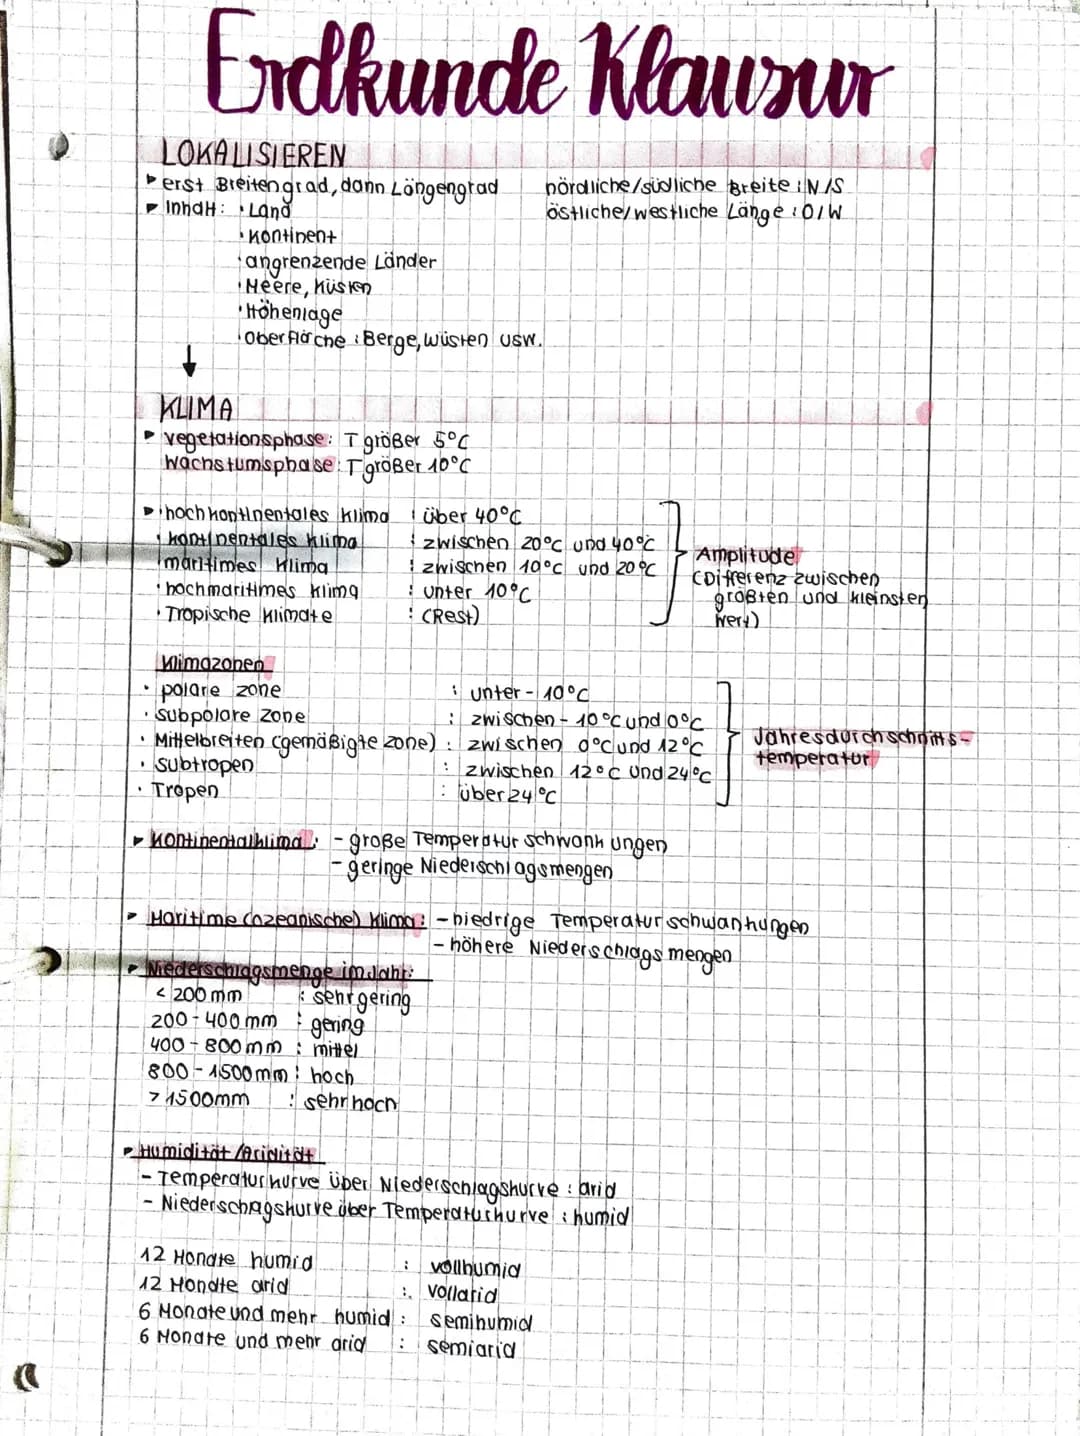 Erdkunde Klausur
LOKALISIEREN
▸ erst Breitengrad, dann Längengrad nördliche/südliche Breite: N/S
▸ Inhalt: • Land östliche/westliche Länge: O/W
• Kontinent
• angrenzende Länder
• Meere, Küsten
• Höhenlage
• Oberfläche: Berge, Wüsten usw.
↓
KLIMA
▸ Vegetationsphase: T größer 5°C
Wachstumsphase: T größer 10°C
▸ • hochkontinentales Klima : über 40°C
• kontinentales Klima : zwischen 20°C und 40°C
• maritimes Klima : zwischen 10°C und 20°C
• hochmaritimes Klima : unter 10°C
• Tropische Klimate : (Rest)
Amplitude
(Differenz zwischen
größten und kleinsten
Wert)
Klimazonen
• polare Zone : unter -10°C
• subpolare Zone : zwischen -10°C und 0°C
• Mittelbreiten (gemäßigte Zone) : zwischen 0°C und 12°C
• Subtropen : zwischen 12°C und 24°C
• Tropen : über 24°C
Jahresdurchschnitts-
temperatur
▸ Kontinentalklima: - große Temperaturschwankungen
- geringe Niederschlagsmengen
▸ Maritime (ozeanische) Klima: - niedrige Temperaturschwankungen
- höhere Niederschlagsmengen
▸ Niederschlagsmenge im Jahr:
< 200 mm : sehr gering
200 - 400 mm : gering
400 - 800 mm : mittel
800 - 1500 mm : hoch
> 1500mm : sehr hoch
▸ Humidität/Aridität
- Temperaturkurve über Niederschlagskurve : arid
- Niederschagskurve über Temperaturkurve : humid
12 Monate humid : vollhumid
12 Monate arid : vollarid
6 Monate und mehr humid : semihumid
6 Monate und mehr arid : semiarid